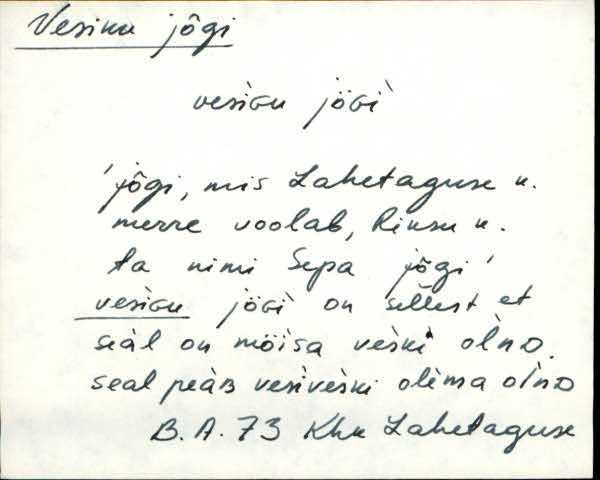 Vesiku jõgi
vesiGu jöGi
'jõgi, mis Lahetaguse k.
merre voolab, Rinsu k.
ta nimi Sepa jõgi'
vesiGu jöGi on sellest et
seàl on möisa vèski olnD.
seal peàB vesivèski olèma olnD
B. A. 73 Khk Lahetaguse